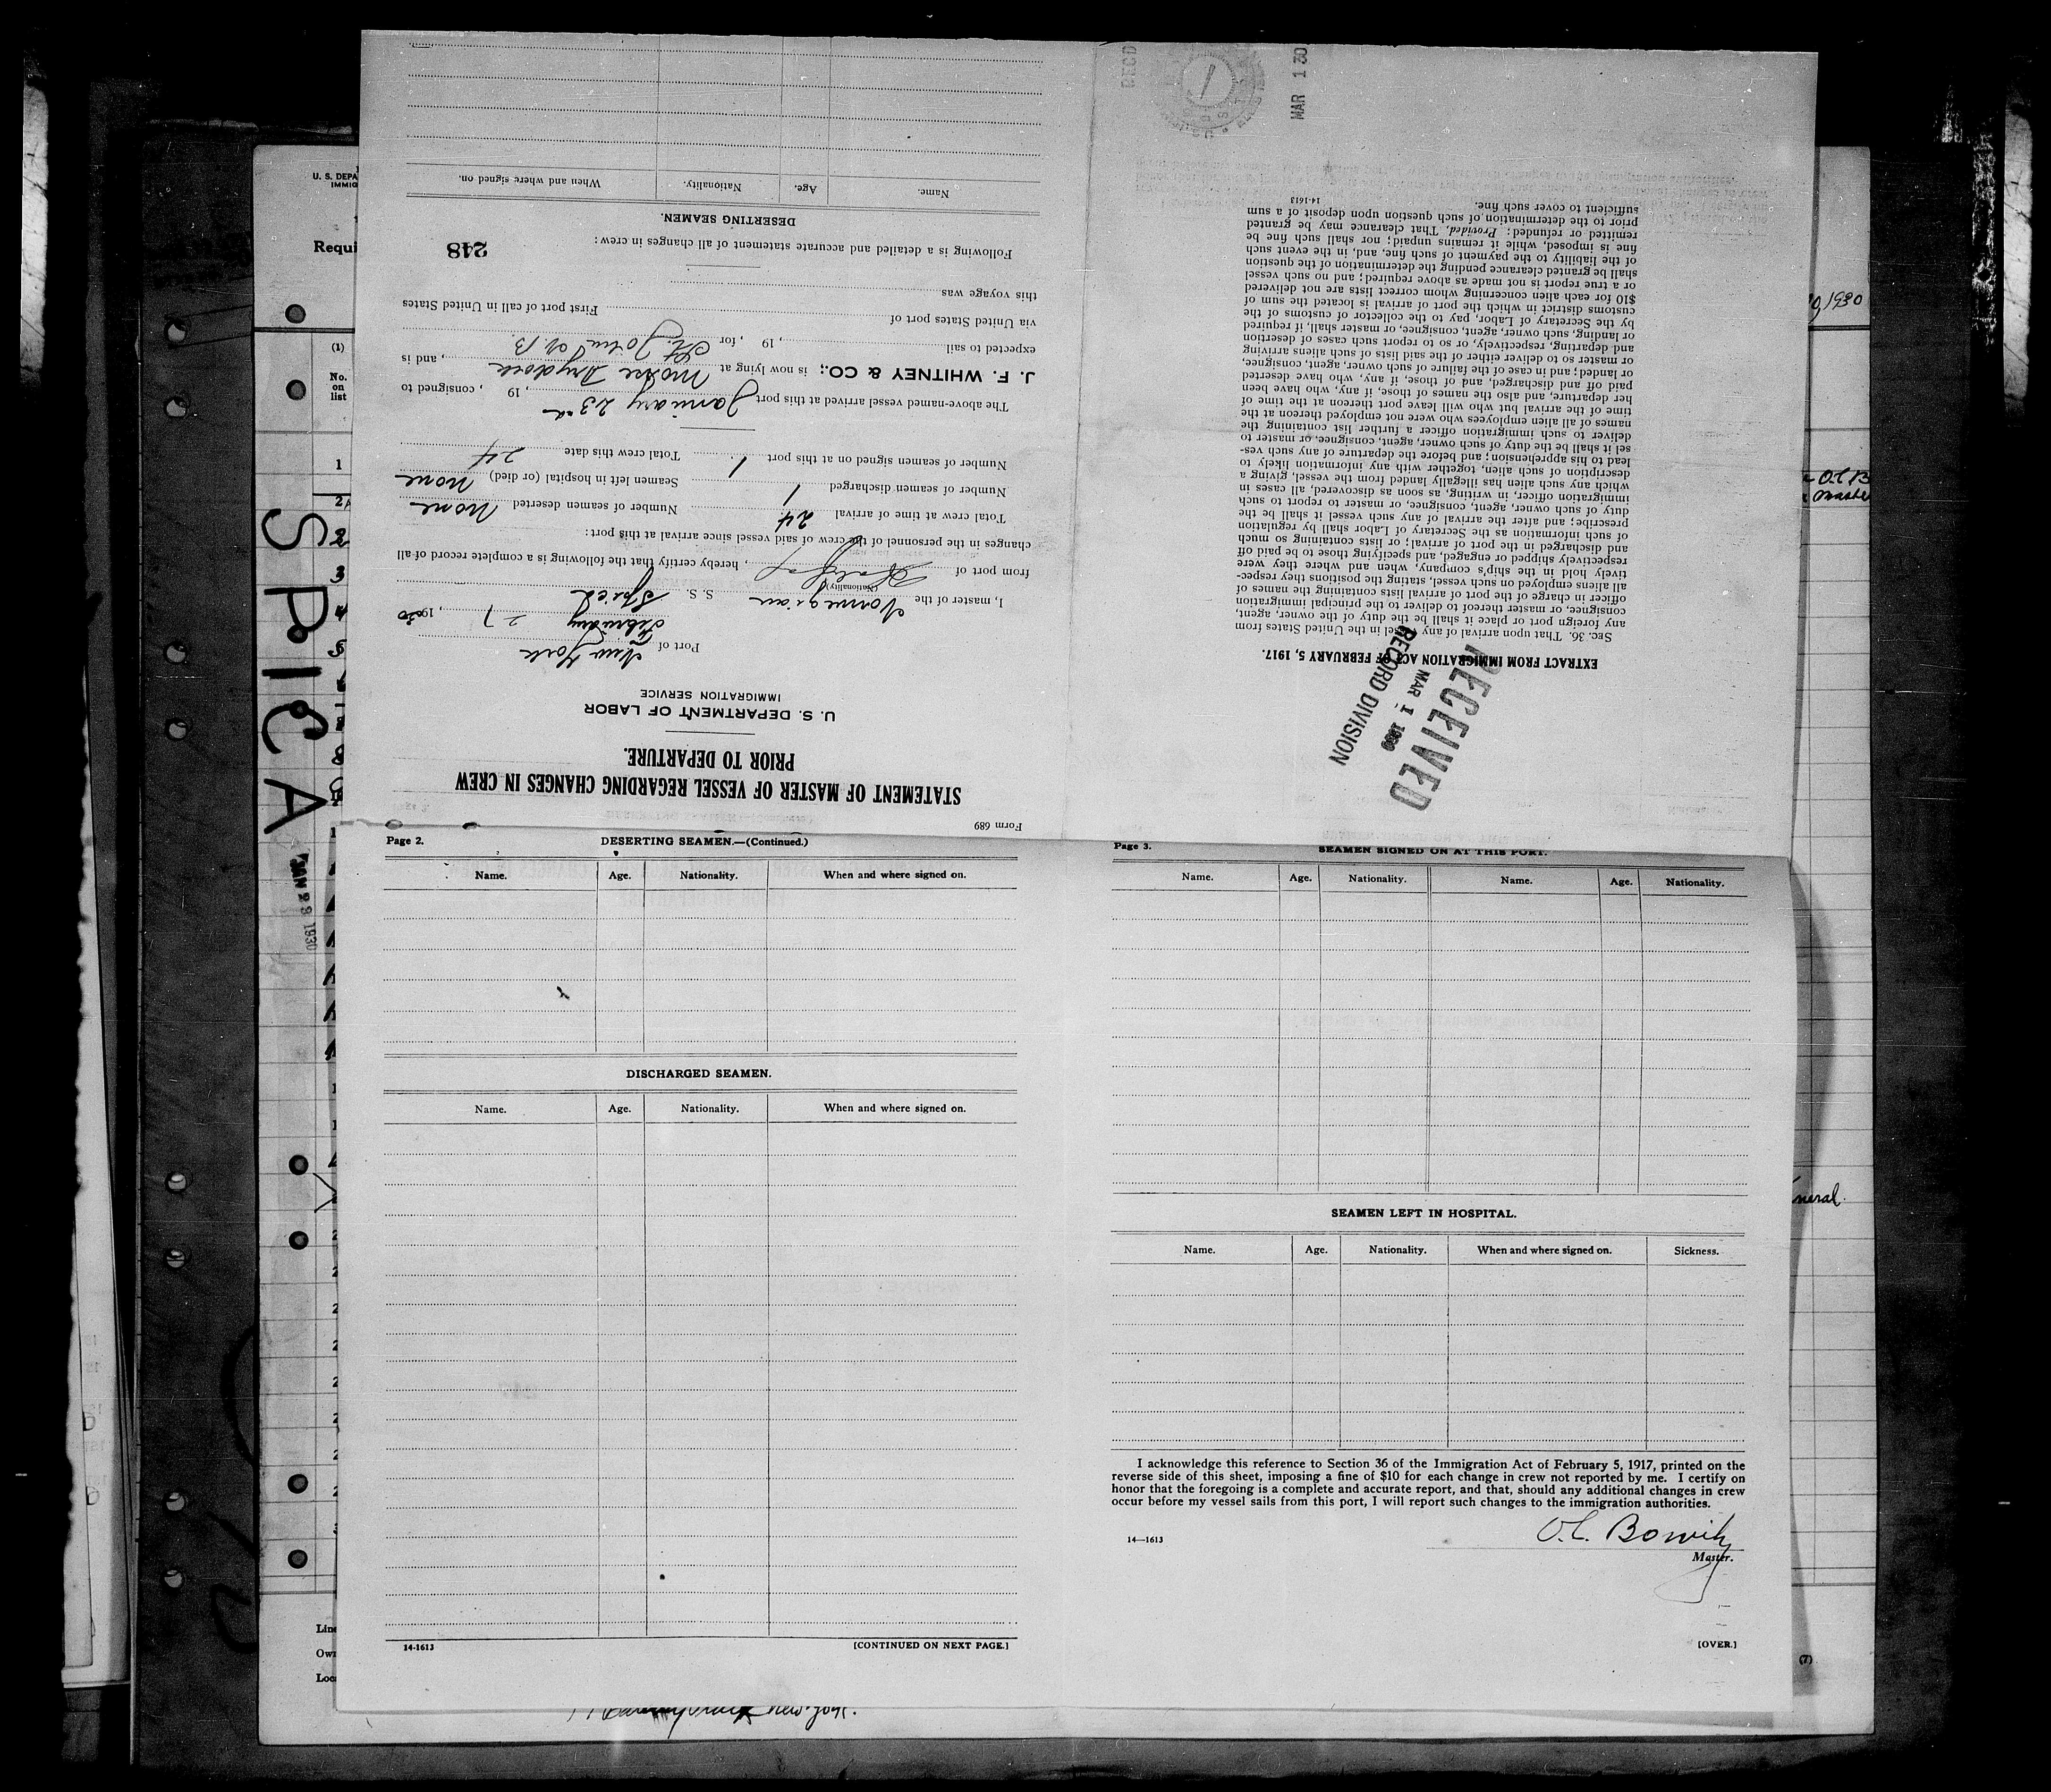 Form 689
STATEMENT OF MASTER OF VESSEL REGARDING CHANGES IN CREW
PRIOR TO DEPARTURE.
U. S. DEPARTMENT OF LABOR
IMMIGRATION SERVICE
Port of New York
February 27, 1930
I, master of the Norwegian S. S. Spica
(Nationality)
from port of , hereby certify that the following is a complete record of all
changes in the personnel of the crew of said vessel since arrival at this port:
Total crew at time of arrival 24 Number of seamen deserted none
Number of seamen discharged 1 Seamen left in hospital (or died) none
Number of seamen signed on at this port 1 Total crew this date 24
The above-named vessel arrived at this port January 23rd, 19 , consigned to
J. F. WHITNEY & CO.; is now lying at Morse Drydock, and is
expected to sail , 19 , for St. John N B
via United States port of First port of call in United States
this voyage was
Following is a detailed and accurate statement of all changes in crew:
248
DESERTING SEAMEN.
Name. Age. Nationality. When and where signed on.
RECEIVED
MAR 1 1930
RECORD DIVISION
EXTRACT FROM IMMIGRATION ACT OF FEBRUARY 5, 1917.
SEC. 36. That upon arrival of any vessel in the United States from
any foreign port or place it shall be the duty of the owner, agent,
consignee, or master thereof to deliver to the principal immigration
officer in charge of the port of arrival lists containing the names of
all aliens employed on such vessel, stating the positions they respec-
tively hold in the ship's company, when and where they were
respectively shipped or engaged, and specifying those to be paid off
and discharged in the port of arrival; or lists containing so much
of such information as the Secretary of Labor shall by regulation
prescribe; and after the arrival of any such vessel it shall be the
duty of such owner, agent, consignee, or master to report to such
immigration officer, in writing, as soon as discovered, all cases in
which any such alien has illegally landed from the vessel, giving a
description of such alien, together with any information likely to
lead to his apprehension; and before the departure of any such ves-
sel it shall be the duty of such owner, agent, consignee, or master to
deliver to such immigration officer a further list containing the
names of all alien employees who were not employed thereon at the
time of the arrival but who will leave port thereon at the time of
her departure, and also the names of those, if any, who have been
paid off and discharged, and of those, if any, who have deserted
or landed; and in case of the failure of such owner, agent, consignee,
or master so to deliver either of the said lists of such aliens arriving
and departing, respectively, or so to report such cases of desertion
or landing, such owner, agent, consignee, or master shall, if required
by the Secretary of Labor, pay to the collector of customs of the
customs district in which the port of arrival is located the sum of
$10 for each alien concerning whom correct lists are not delivered
or a true report is not made as above required; and no such vessel
shall be granted clearance pending the determination of the question
of the liability to the payment of such fine, and, in the event such
fine is imposed, while it remains unpaid; nor shall such fine be
remitted or refunded: Provided, That clearance may be granted
prior to the determination of such question upon deposit of a sum
sufficient to cover such fine.
14-1613
REC'D
MAR 1 30
Page 2. DESERTING SEAMEN.—(Continued.)
Name. Age. Nationality. When and where signed on.
DISCHARGED SEAMEN.
Name. Age. Nationality. When and where signed on.
14-1613 [CONTINUED ON NEXT PAGE.]
Page 3. SEAMEN SIGNED ON AT THIS PORT.
Name. Age. Nationality. Name. Age. Nationality.
SEAMEN LEFT IN HOSPITAL.
Name. Age. Nationality. When and where signed on. Sickness.
I acknowledge this reference to Section 36 of the Immigration Act of February 5, 1917, printed on the
reverse side of this sheet, imposing a fine of $10 for each change in crew not reported by me. I certify on
honor that the foregoing is a complete and accurate report, and that, should any additional changes in crew
occur before my vessel sails from this port, I will report such changes to the immigration authorities.
14—1613
Master.
[OVER.]
U. S. DEPA
IMMIG
Requi
(1)
No.
on
list
1
2
3
4
5
SPICA
JAN 29 1930
Line
Own
Loc
1930
Master
neral.
(7)